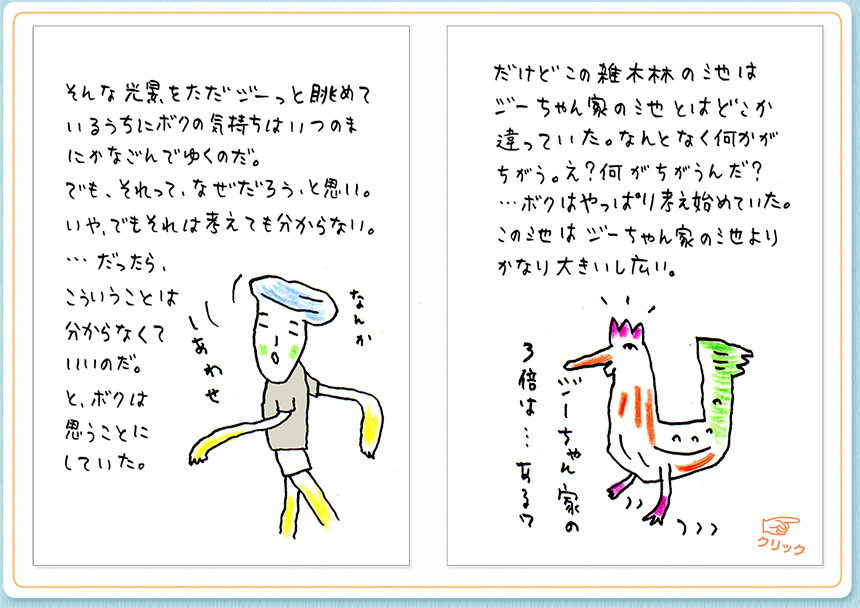 そんな光景をただジーっと眺めて
いるうちにボクの気持ちはいつのま
にかなごんでゆくのだ。
でも、それって、なぜだろう、と思い。
いや、でもそれは考えても分からない。
…だったら、
こういうことは
分からなくて
いいのだ。
と、ボクは
思うことに
していた。
なんか
しあわせ
だけどこの雑木林の池は
ジーちゃん家の池とはどこか
違っていた。なんとなく何かが
ちがう。え?何がちがうんだ?
…ボクはやっぱり考え始めていた。
この池はジーちゃん家の池より
かなり大きいし広い。
ジーちゃん家の
3倍は…あるワ
クリック